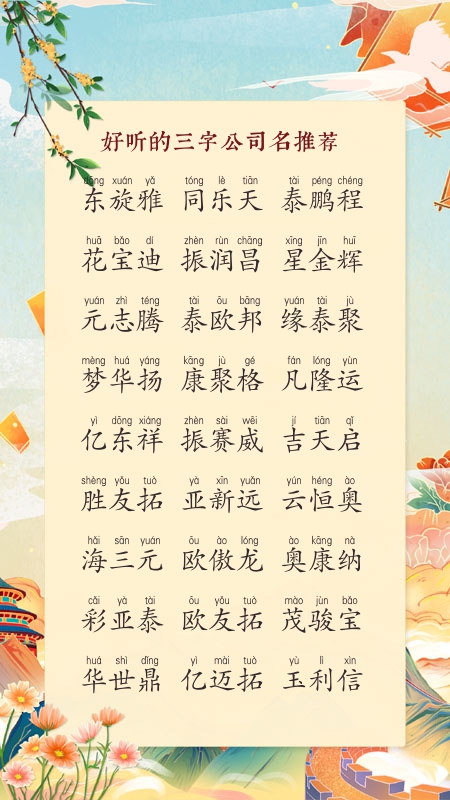 好听的三字公司名推荐
dōng xuán yǎ tóng lè tiān tài péng chéng
东旋雅 同乐天 泰鹏程
huā bǎo dí zhèn rùn chāng xīng jīn huī
花宝迪 振润昌 星金辉
yuán zhì téng tài ōu bāng yuán tài jù
元志腾 泰欧邦 缘泰聚
mèng huá yáng kāng jù gé fán lóng yùn
梦华扬 康聚格 凡隆运
yì dōng xiáng zhèn sài wēi jí tiān qǐ
亿东祥 振赛威 吉天启
shèng yǒu tuò yà xīn yuǎn yún héng ào
胜友拓 亚新远 云恒奥
hǎi sān yuán ōu ào lóng ào kāng nà
海三元 欧傲龙 奥康纳
cǎi yà tài ōu yǒu tuò mào jùn bǎo
彩亚泰 欧友拓 茂骏宝
huá shì dǐng yì mài tuò yù lì xìn
华世鼎 亿迈拓 玉利信